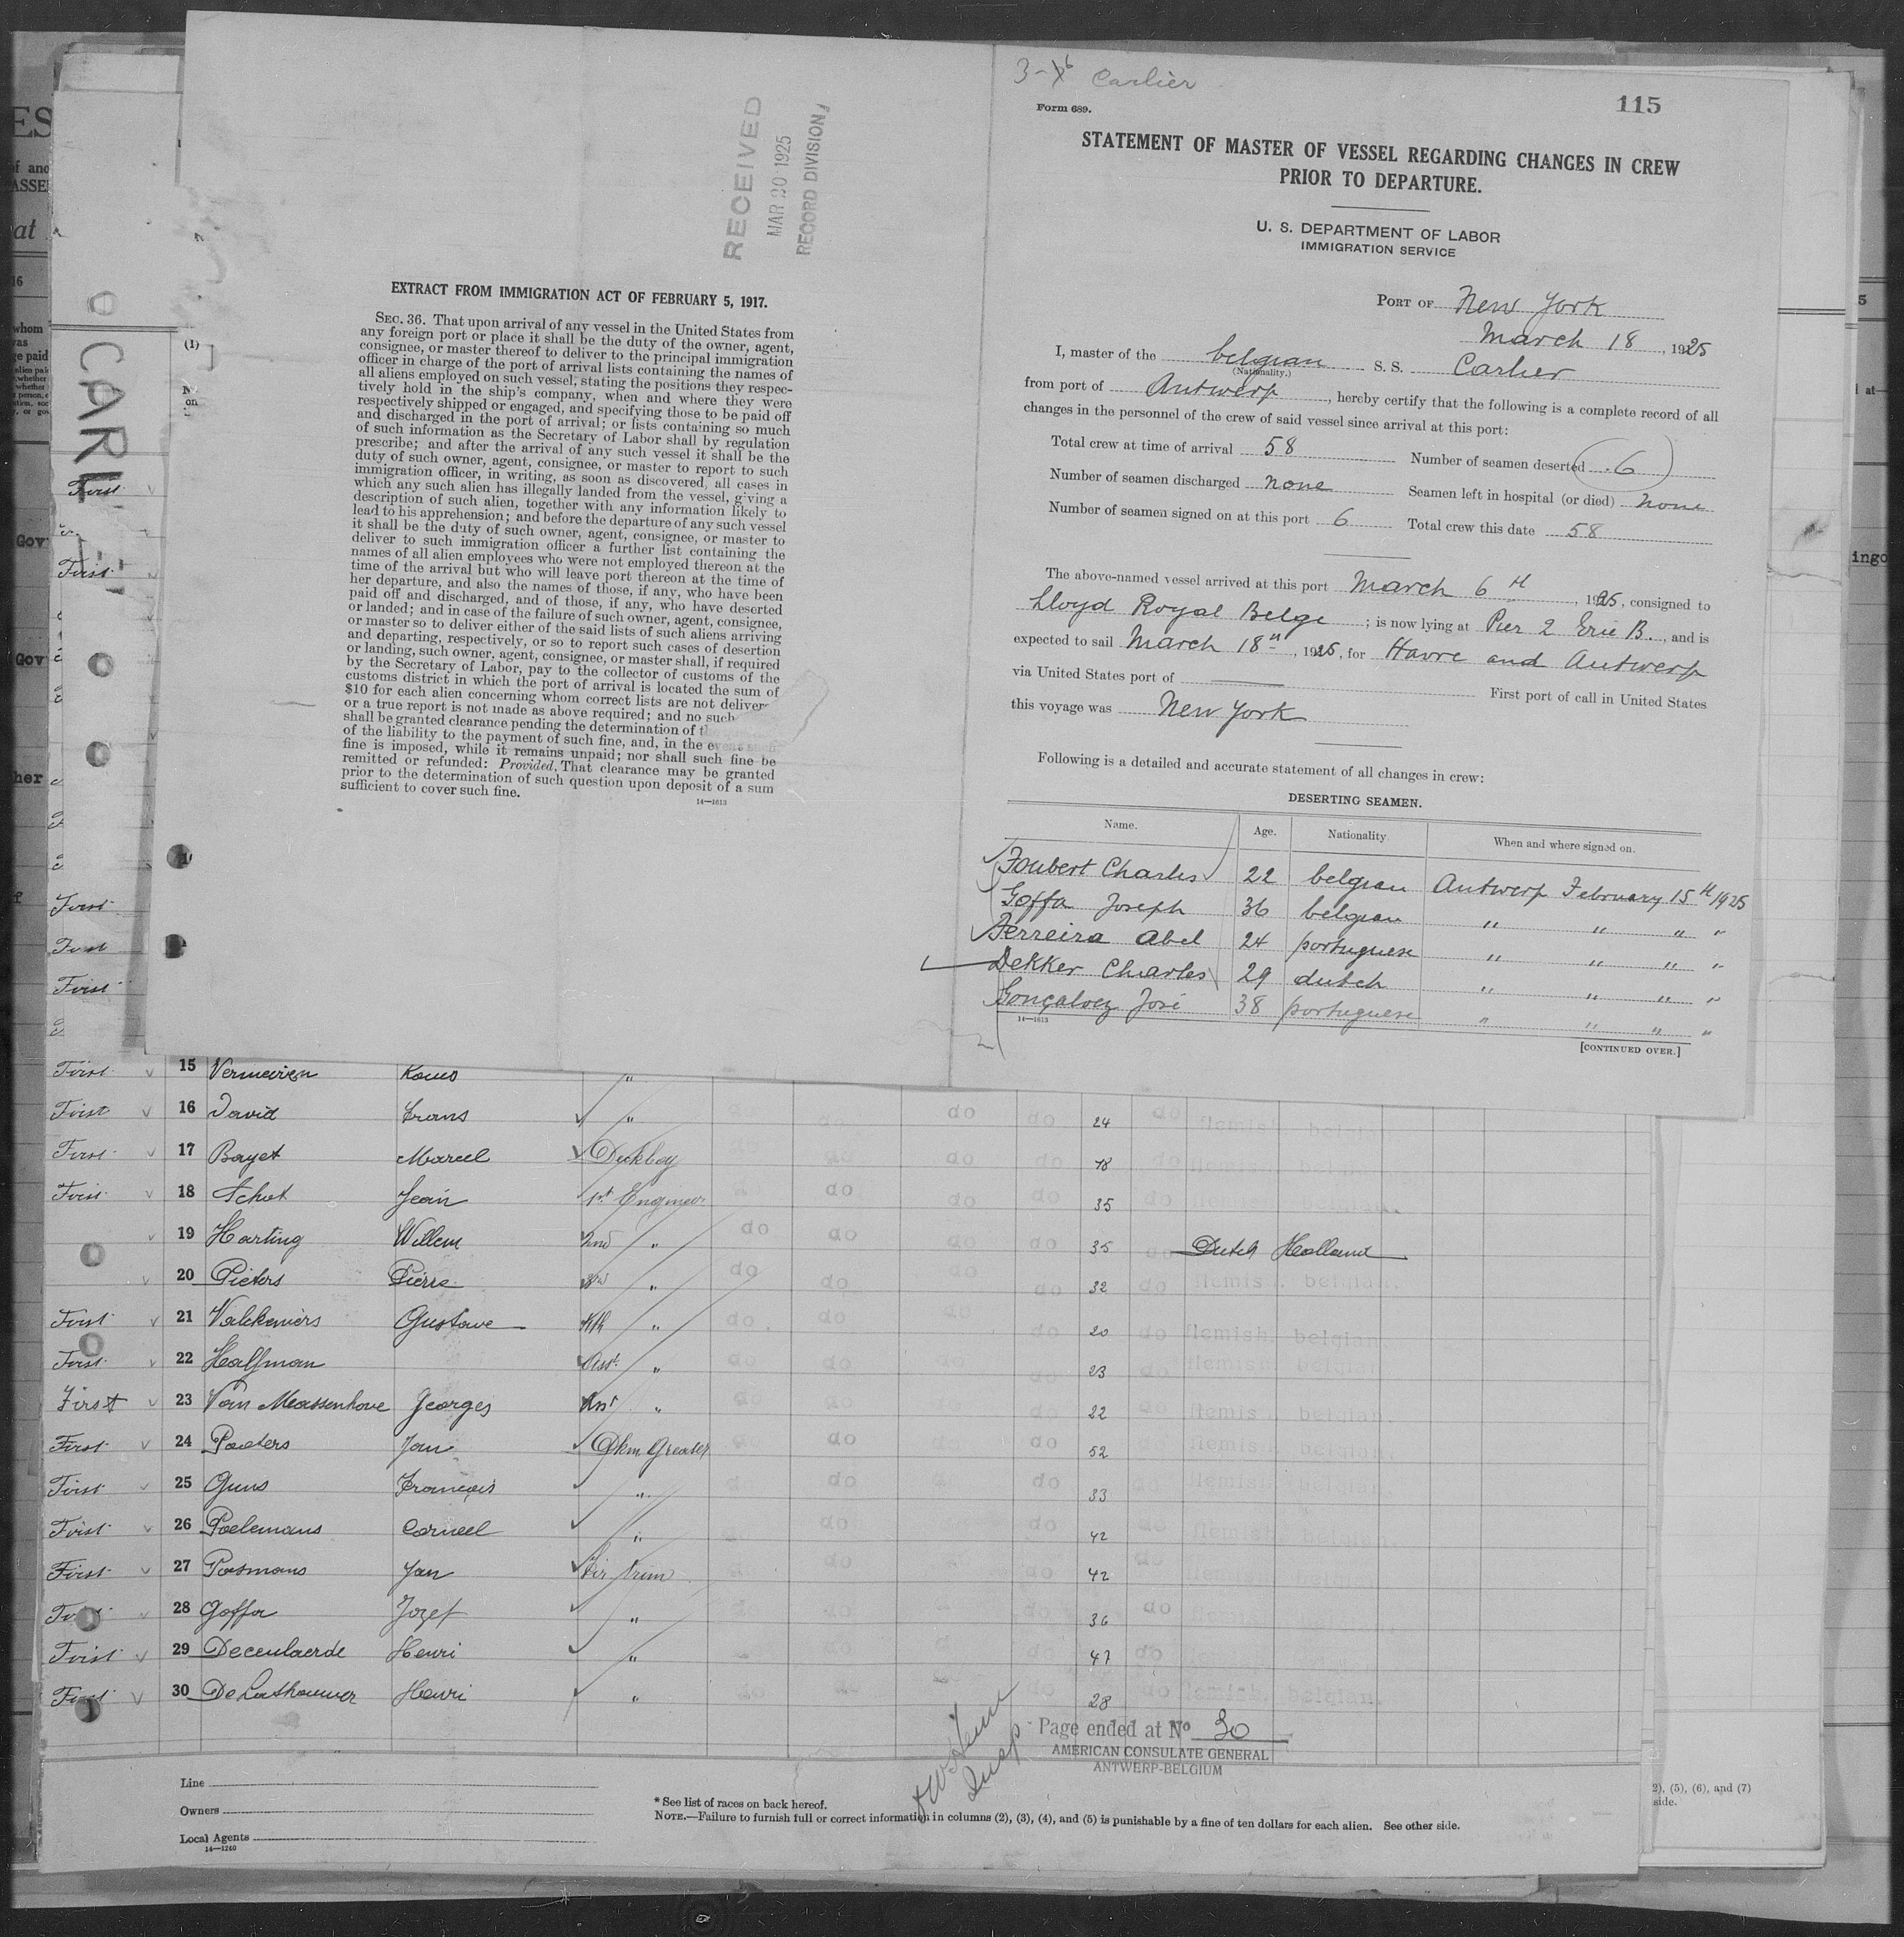 3-6 Carlier
Form 689.
115
STATEMENT OF MASTER OF VESSEL REGARDING CHANGES IN CREW
PRIOR TO DEPARTURE.
U. S. DEPARTMENT OF LABOR
IMMIGRATION SERVICE
PORT OF New York
March 18, 1925
I, master of the belgian S. S. Carlier
(Nationality.)
from port of Antwerp, hereby certify that the following is a complete record of all
changes in the personnel of the crew of said vessel since arrival at this port:
Total crew at time of arrival 58 Number of seamen deserted 6
Number of seamen discharged none Seamen left in hospital (or died) none
Number of seamen signed on at this port 6 Total crew this date 58
The above-named vessel arrived at this port March 6th, 1925, consigned to
Lloyd Royal Belge; is now lying at Pier 2 Erie B., and is
expected to sail March 18th, 1925, for Havre and Antwerp
via United States port of — First port of call in United States
this voyage was New York
Following is a detailed and accurate statement of all changes in crew:
DESERTING SEAMEN.
Name. Age. Nationality. When and where signed on.
Foubert Charles 22 belgian Antwerp February 15th 1925
Goffa Joseph 36 belgian " " " "
Ferreira Abel 24 portuguese " " " "
Dekker Charles 29 dutch " " " "
Gonçalvez José 38 portuguese " " " "
14—1613
[CONTINUED OVER.]
RECEIVED
MAR 20 1925
RECORD DIVISION
EXTRACT FROM IMMIGRATION ACT OF FEBRUARY 5, 1917.
SEC. 36. That upon arrival of any vessel in the United States from
any foreign port or place it shall be the duty of the owner, agent,
consignee, or master thereof to deliver to the principal immigration
officer in charge of the port of arrival lists containing the names of
all aliens employed on such vessel, stating the positions they respec-
tively hold in the ship's company, when and where they were
respectively shipped or engaged, and specifying those to be paid off
and discharged in the port of arrival; or lists containing so much
of such information as the Secretary of Labor shall by regulation
prescribe; and after the arrival of any such vessel it shall be the
duty of such owner, agent, consignee, or master to report to such
immigration officer, in writing, as soon as discovered, all cases in
which any such alien has illegally landed from the vessel, giving a
description of such alien, together with any information likely to
lead to his apprehension; and before the departure of any such vessel
it shall be the duty of such owner, agent, consignee, or master to
deliver to such immigration officer a further list containing the
names of all alien employees who were not employed thereon at the
time of the arrival but who will leave port thereon at the time of
her departure, and also the names of those, if any, who have been
paid off and discharged, and of those, if any, who have deserted
or landed; and in case of the failure of such owner, agent, consignee,
or master so to deliver either of the said lists of such aliens arriving
and departing, respectively, or so to report such cases of desertion
or landing, such owner, agent, consignee, or master shall, if required
by the Secretary of Labor, pay to the collector of customs of the
customs district in which the port of arrival is located the sum of
$10 for each alien concerning whom correct lists are not deliver
or a true report is not made as above required; and no such
shall be granted clearance pending the determination of
of the liability to the payment of such fine, and, in the event such
fine is imposed, while it remains unpaid; nor shall such fine be
remitted or refunded: Provided, That clearance may be granted
prior to the determination of such question upon deposit of a sum
sufficient to cover such fine.
14—1613
First 15 Vermeiren "
First 16 David Frans " do do 24 do flemish belgian
First 17 Bayet Marcel Deckboy do do do 18 do
First 18 Schut Jean 1st Engineer do do do 35 do
19 Harting Willem 2nd " do do do do 35 Dutch Holland
20 Pieters Pierre 3rd " do do do do 32 do flemish belgian.
First 21 Valckeniers Gustave 4th " do do do do 20 do flemish belgian
First 22 Halfman Asst. " do do do 23 do flemish
First 23 Van Meassenhove Georges Asst " do do 22 do flemish belgian.
First 24 Peeters Jan Dkm Greaser do do 52 flemish belgian.
First 25 Guns François " do do 33 flemish belgian.
First 26 Poelemans Corneel " do do 42 do flemish
First 27 Posmans Jan Fir trim do do 42 do
First 28 Goffa Jozef " do 36 do
First 29 Deceulaerde Henri " do 47 do
First 30 Henri " do do 28 do flemish, belgian.
Page ended at No 30
AMERICAN CONSULATE GENERAL
ANTWERP-BELGIUM
Line
Owners
Local Agents
14—1240
* See list of races on back hereof.
NOTE.—Failure to furnish full or correct information in columns (2), (3), (4), and (5) is punishable by a fine of ten dollars for each alien. See other side.